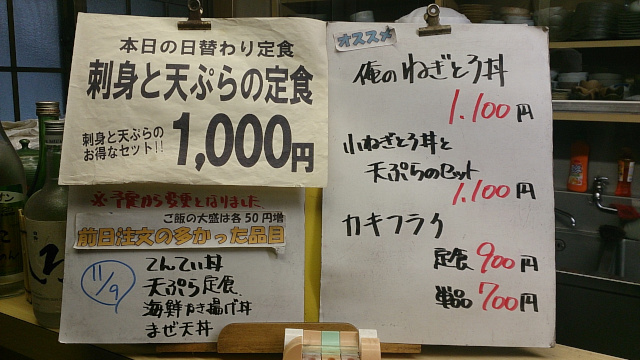 本日の日替わり定食
刺身と天ぷらの定食
刺身と天ぷらの
お得なセット!!
1,000円
ご飯の大盛は各50円増
前日注文の多かった品目
11/9
てんてい丼
天ぷら定食
海鮮かき揚げ丼
まぜ天丼
オススメ
俺のねぎとろ丼
1.100円
小ねぎとろ丼と
天ぷらのセット
1.100円
カキフライ
定食900円
単品700円